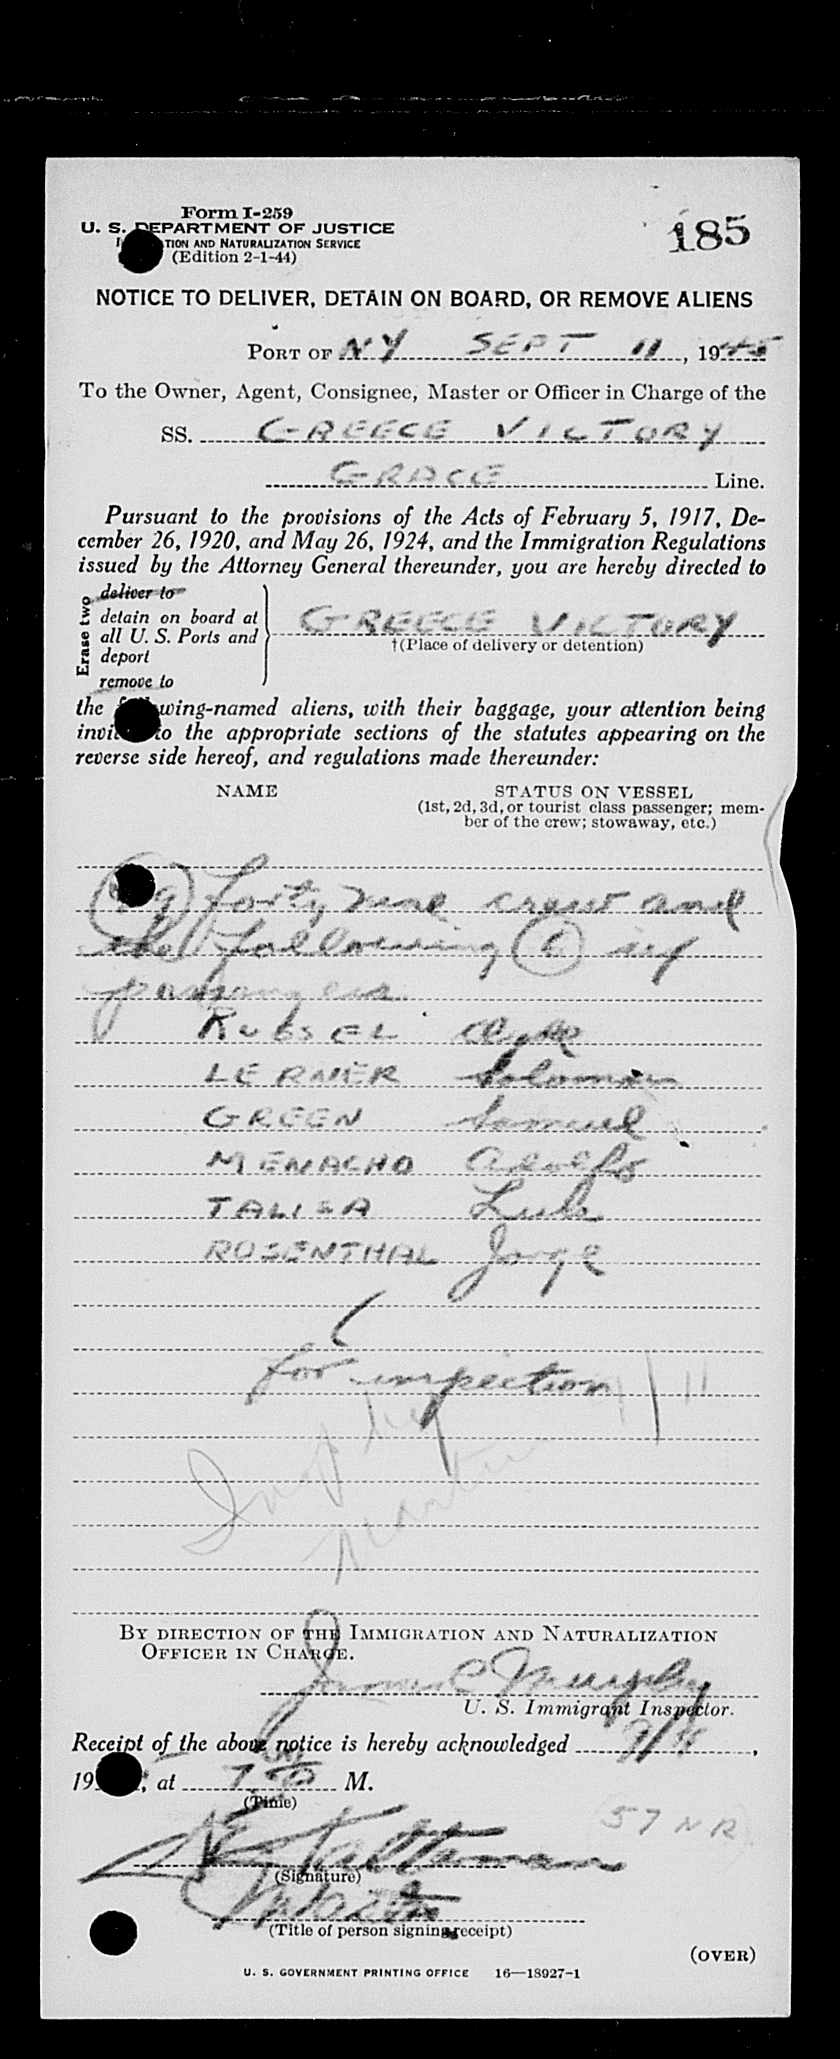 Form I-259
U. S. DEPARTMENT OF JUSTICE
TION AND NATURALIZATION SERVICE
(Edition 2-1-44)
185
NOTICE TO DELIVER, DETAIN ON BOARD, OR REMOVE ALIENS
PORT OF NY SEPT 11, 1945
To the Owner, Agent, Consignee, Master or Officer in Charge of the
SS. GREECE VICTORY
GRACE Line.
Pursuant to the provisions of the Acts of February 5, 1917, De-
cember 26, 1920, and May 26, 1924, and the Immigration Regulations
issued by the Attorney General thereunder, you are hereby directed to
Erase two
deliver to
detain on board at
all U. S. Ports and
deport
remove to
GREECE VICTORY
†(Place of delivery or detention)
the following-named aliens, with their baggage, your attention being
invited to the appropriate sections of the statutes appearing on the
reverse side hereof, and regulations made thereunder:
NAME STATUS ON VESSEL
(1st, 2d, 3d, or tourist class passenger; mem-
ber of the crew; stowaway, etc.)
(49) forty nine crew and
the following (6) six
passengers
RUSSEL Clyde
LERNER Solomon
GREEN Samuel
MENACHO Adolfo
TALISA Luis
ROSENTHAL Jorge
for inspection
BY DIRECTION OF THE IMMIGRATION AND NATURALIZATION
OFFICER IN CHARGE.
Murphy
U. S. Immigrant Inspector.
Receipt of the above notice is hereby acknowledged 9/11,
19 , at 7 M.
(Time)
57 NR
(Signature)
Master
(Title of person signing receipt)
(OVER)
U. S. GOVERNMENT PRINTING OFFICE 16—18927-1